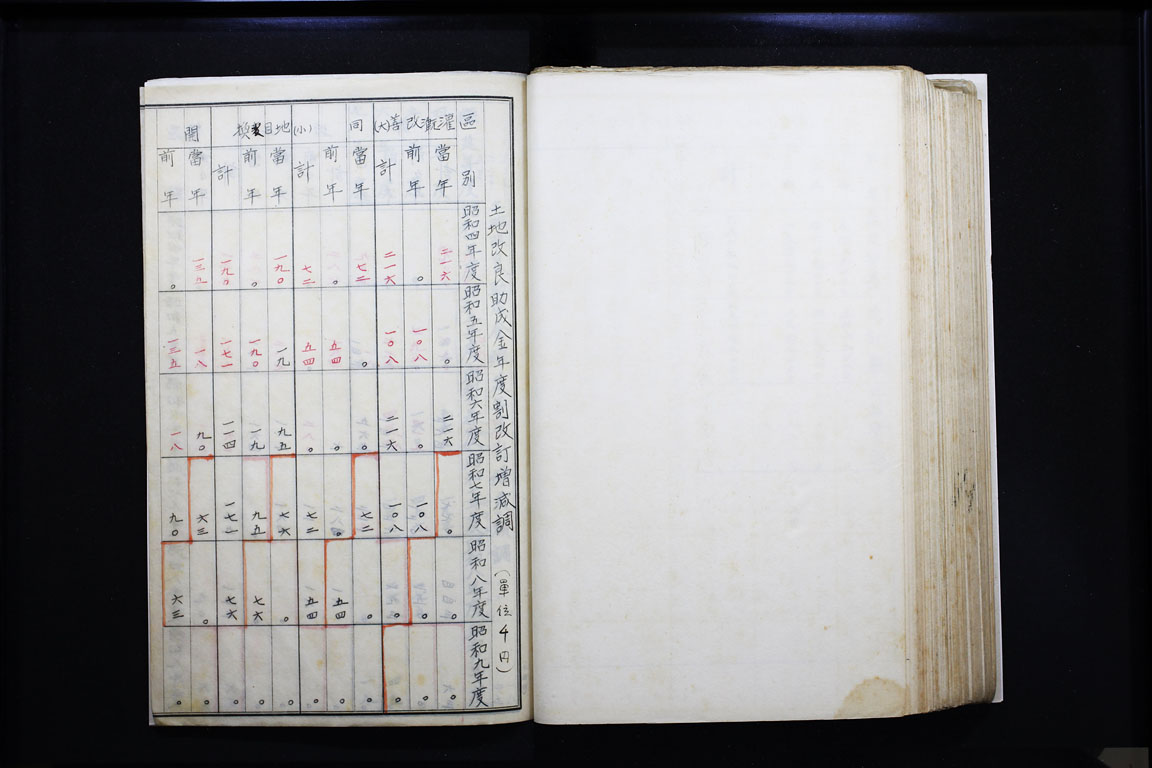 土地改良助成金年度割改訂増減調 (單位千円)
區別 昭和四年度 昭和五年度 昭和六年度 昭和七年度 昭和八年度 昭和九年度
灌漑改善(大)
當年 二一六 〇 二一六 〇 〇 〇
前年 〇 一〇八 〇 一〇八 〇 〇
計 二一六 一〇八 二一六 一〇八 〇 〇
同(小)
當年 七二 〇 〇 七二 〇 〇
前年 〇 五四 〇 〇 五四 〇
計 七二 五四 〇 七二 五四 〇
地目変換
當年 一九〇 一九 九五 七六 〇 〇
前年 〇 一九〇 一九 九五 七六 〇
計 一九〇 一七一 一一四 一七一 七六 〇
開
當年 一三五 一八 九〇 六三 〇 〇
前年 〇 一三五 一八 九〇 六三 〇